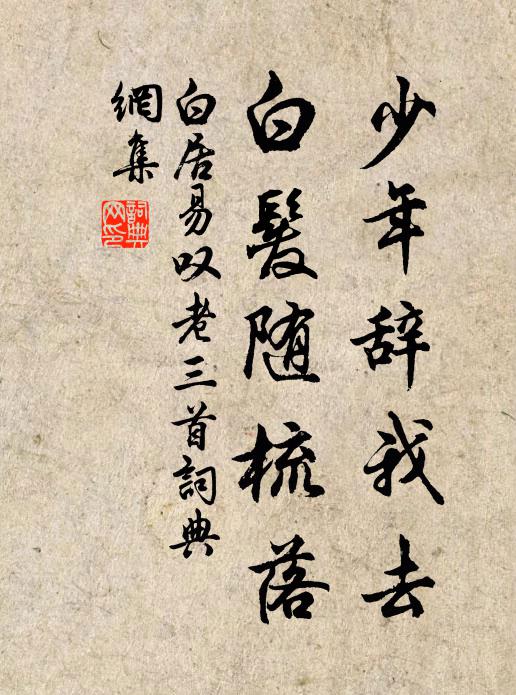 少年辞我去
白髮随梳落
白居易叹老三首詞典
網集
詞典
网印